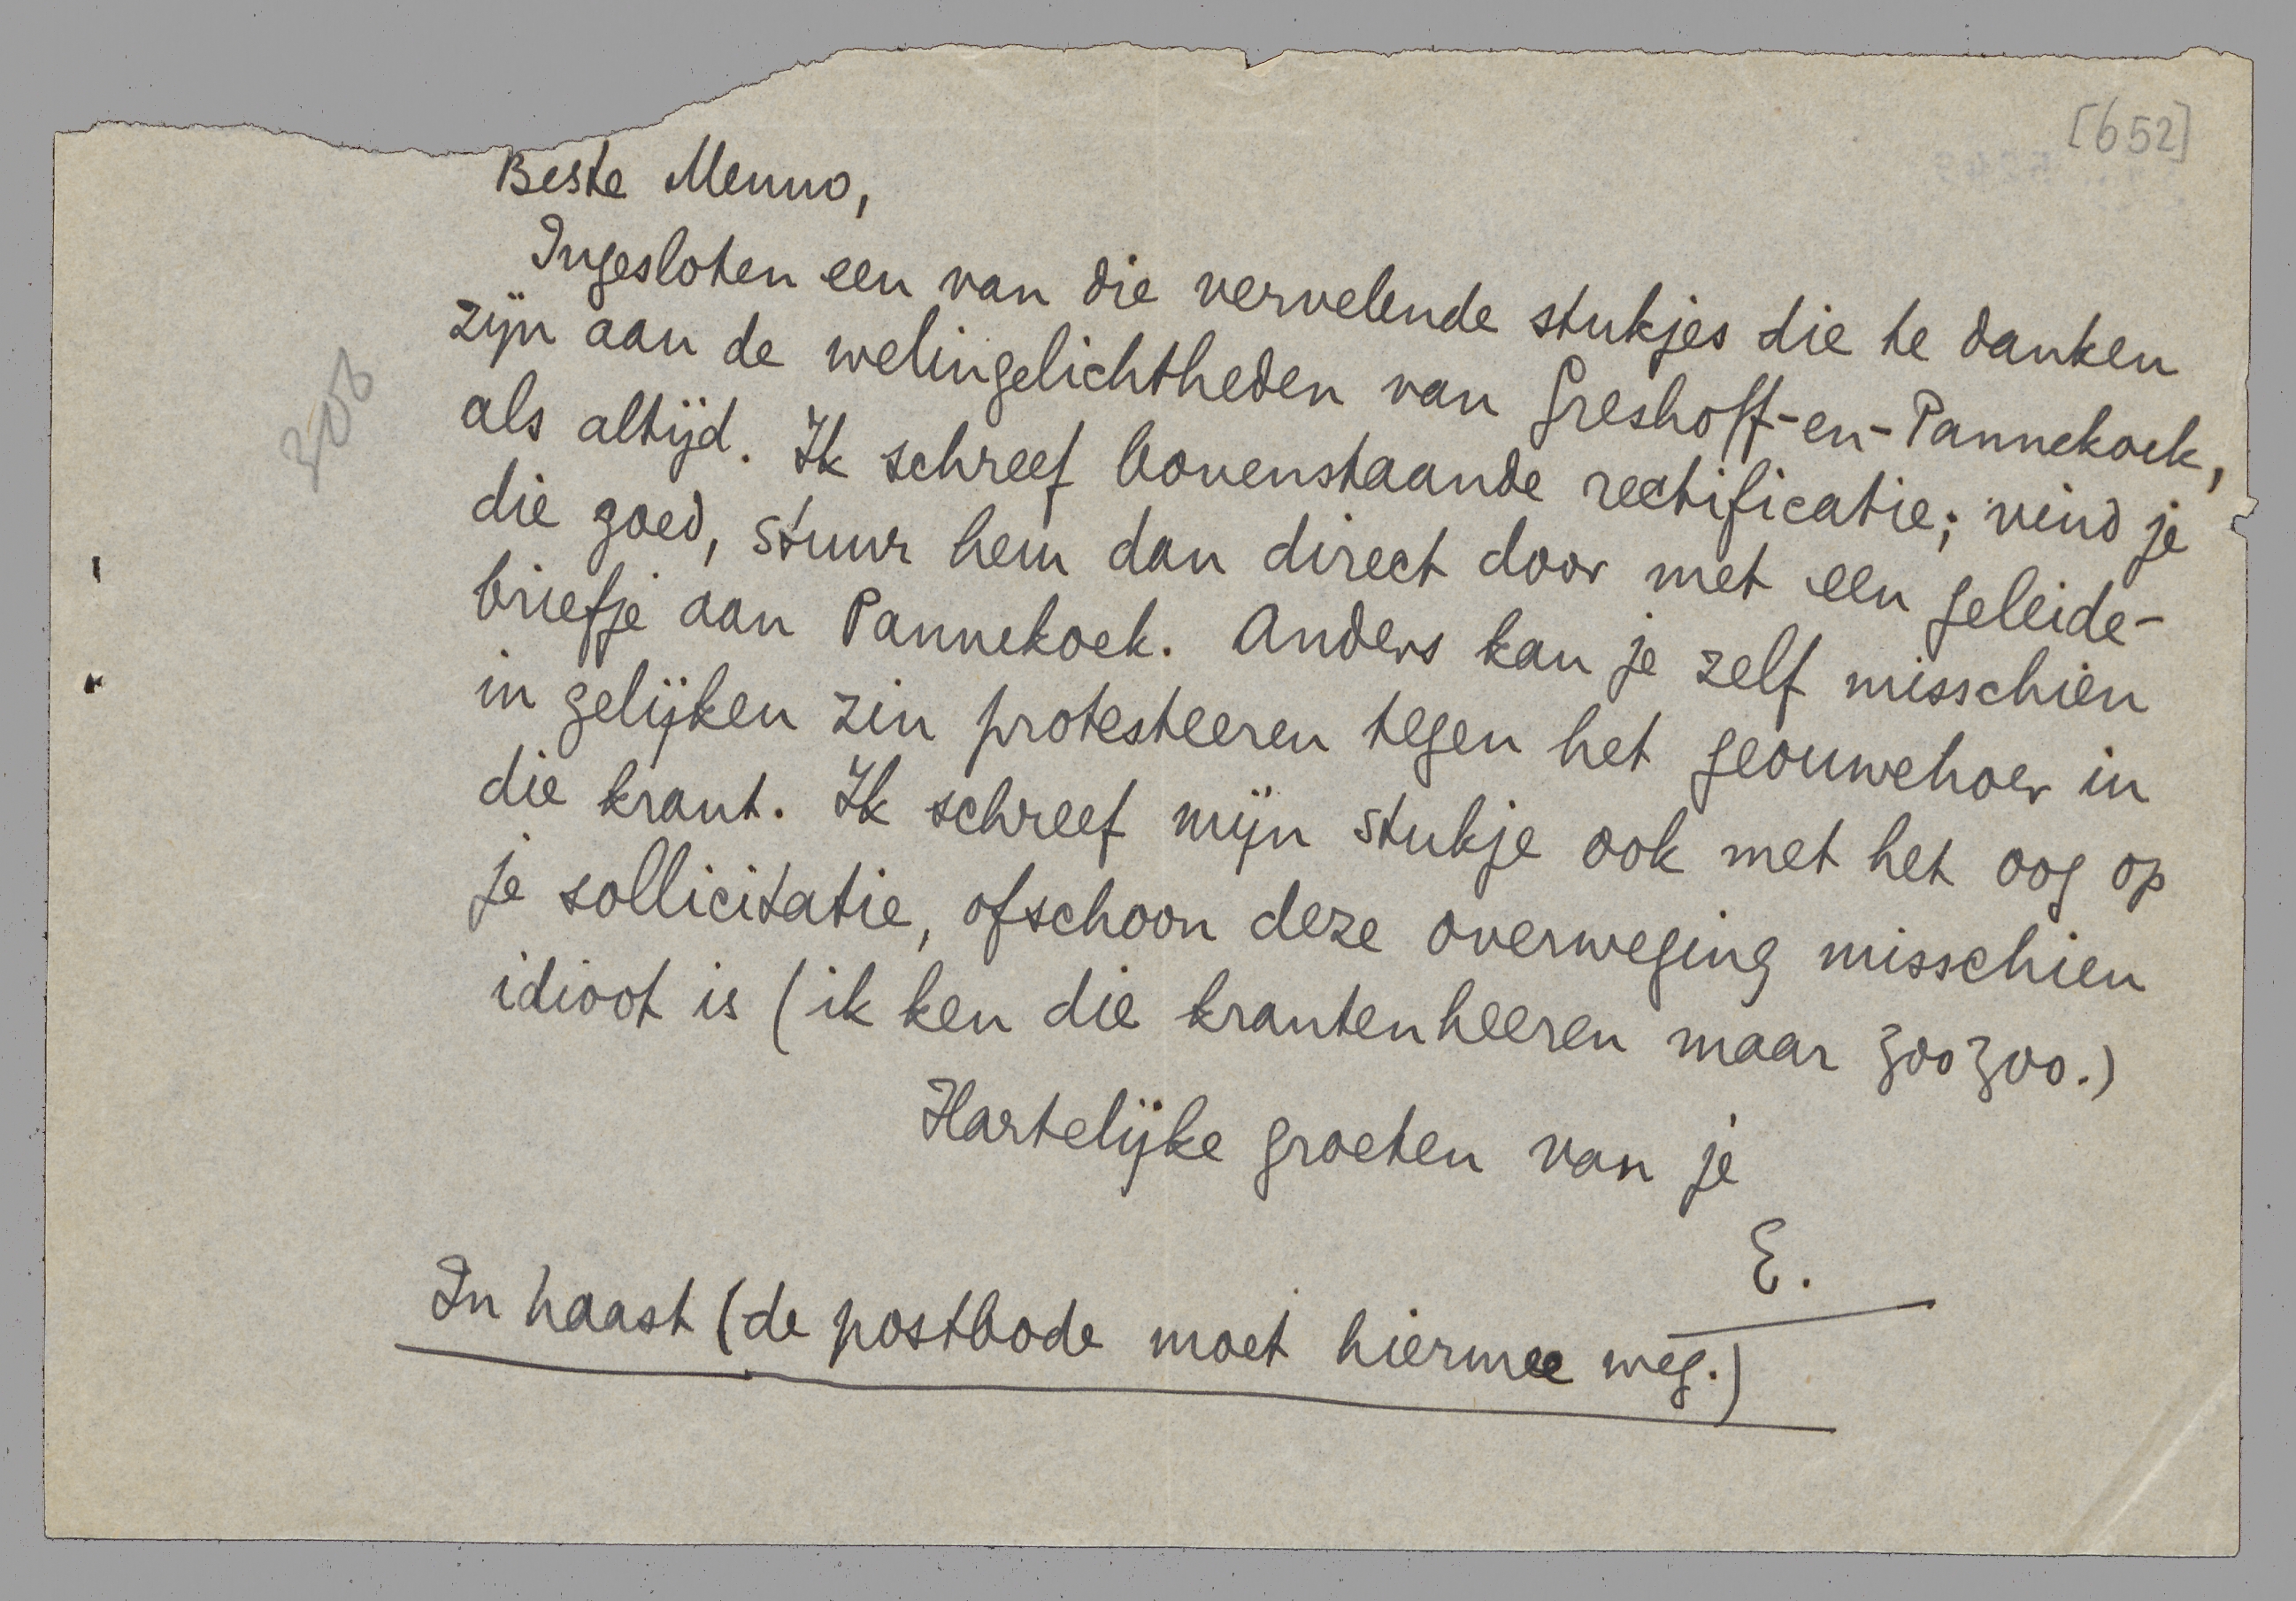 [652]
Beste Menno,
Ingesloten een van die vervelende stukjes die te danken
zijn aan de welingelichtheden van Greshoff-en-Pannekoek,
als altijd. Ik schreef bovenstaande rectificatie; vind je
die goed, stuur hem dan direct door met een geleide-
briefje aan Pannekoek. Anders kan je zelf misschien
in gelijken zin protesteeren tegen het geouwehoer in
die krant. Ik schreef mijn stukje ook met het oog op
je sollicitatie, ofschoon deze overweging misschien
idioot is (ik ken die krantenheeren maar zoozoo.)
Hartelijke groeten van je
E.
In haast (de postbode moet hiermee weg.)